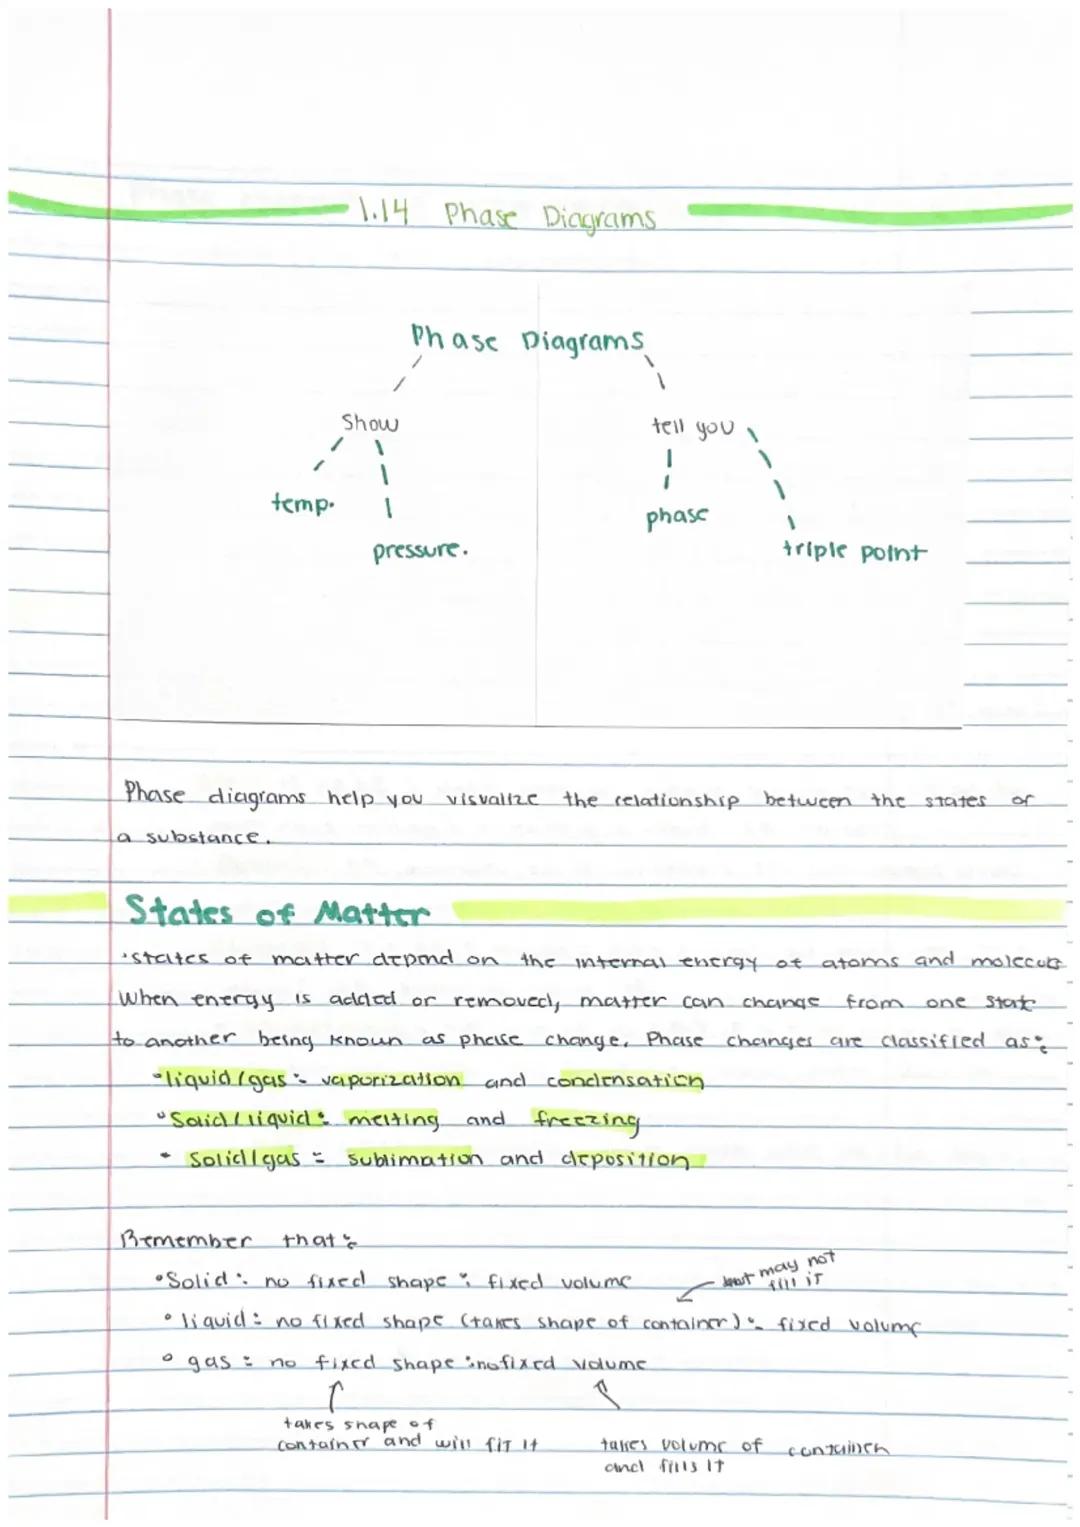 1.14 Phase Diagrams
Phase Diagrams
Show
tell you
temp.
phase
pressure.
triple point
Phase diagrams help you visualize the relationship between the states of
a substance.
States of Matter
•states of matter depend on the internal energy of atoms and molecules
When energy is added or removed, matter can change from one state
to another being known as phase change. Phase changes are classified as:
•liquid/gas: vaporization and condensation
•Solid/liquid: melting and freezing
• Solid/gas: sublimation and deposition
Remember that:
•Solid: no fixed shape : fixed volume
but may not
fill it
• liquid: no fixed shape (takes shape of container): fixed volume
• gas: no fixed shape :no fixed volume
takes shape of
container and will fit it
takes volume of container
and fills it